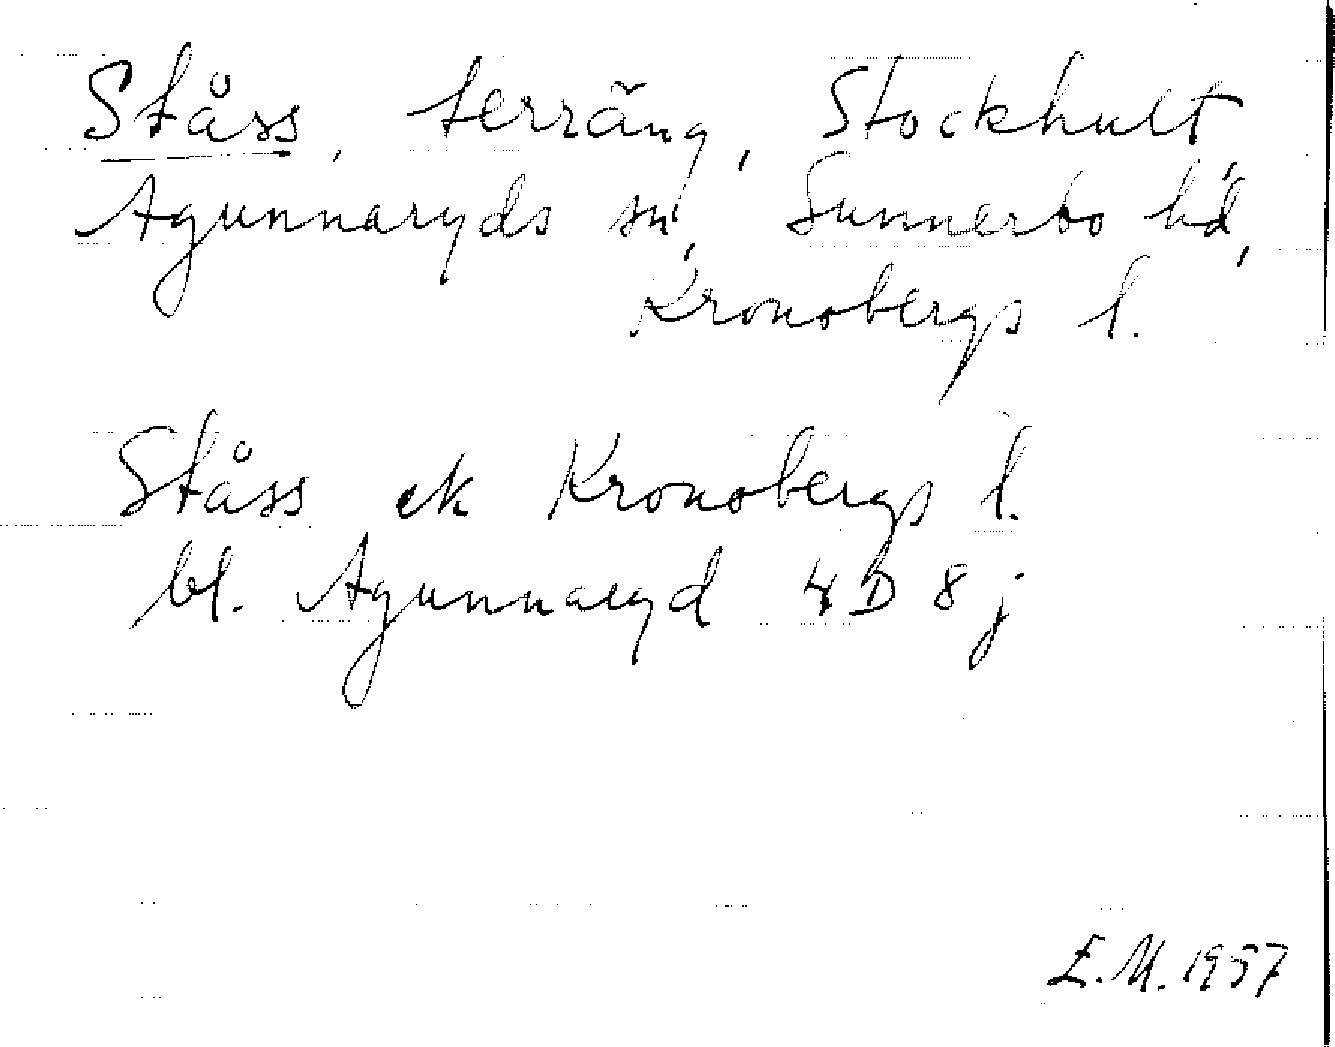 Ståss, terräng, Stockhult,
Agunnaryds sn, Sunnerbo hd,
Kronobergs l.
Ståss ek Kronobergs l.
bl. Agunnaryd 4D 8j
E.M. 1957